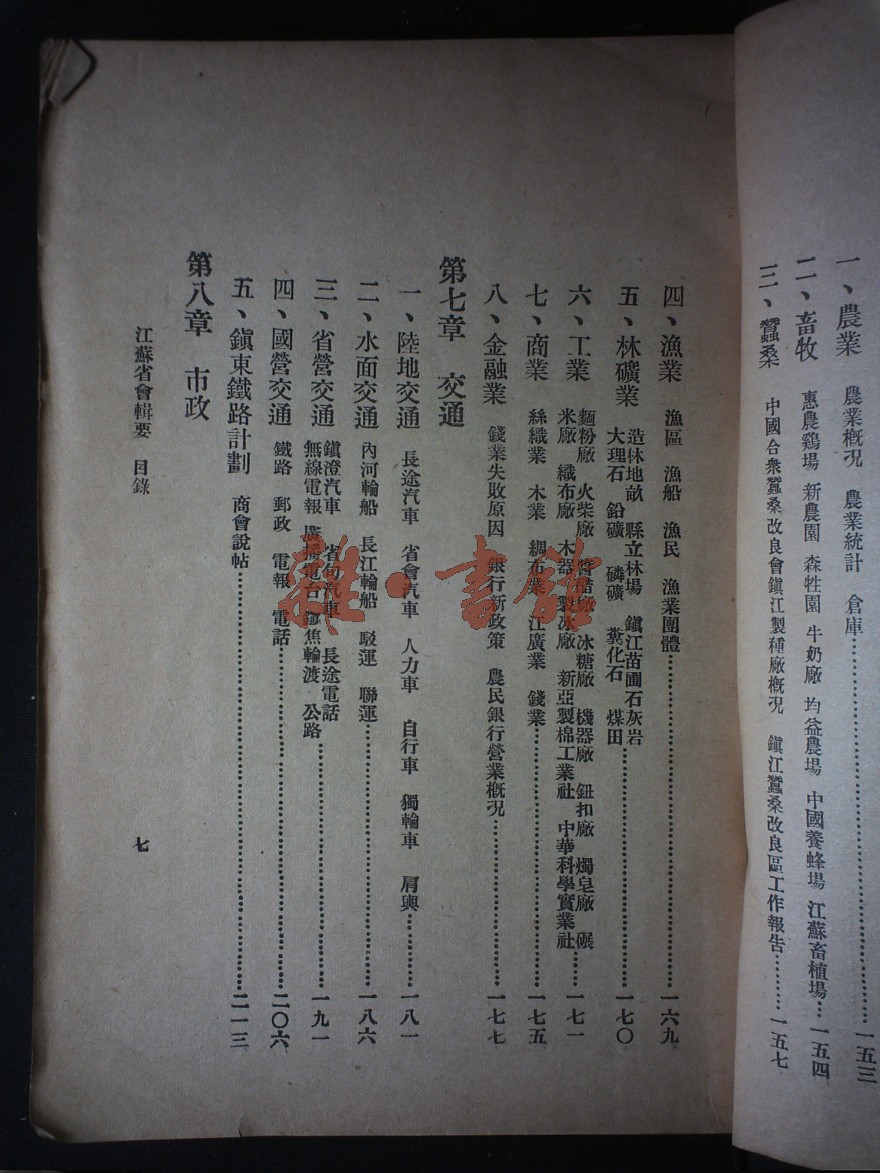 一、農業 農業概況 農業統計 倉庫……一五三
二、畜牧 惠農鷄場 新農園 森牲園 牛奶廠 均益農場 中國養蜂場 江蘇畜植場……一五四
三、蠶桑 中國合衆蠶桑改良會鎭江製種廠概況 鎭江蠶桑改良區工作報告……一五七
四、漁業 漁區 漁船 漁民 漁業團體……一六九
五、林礦業 造林地畝 縣立林場 鎭江苗圃石灰岩
大理石 鉛礦 磷礦 糞化石 煤田……一七〇
六、工業 麵粉廠 火柴廠 醬醋廠 冰糖廠 機器廠 鈕扣廠 燭皂廠 碾
米廠 織布廠 木器廠 製冰廠 新亞製棉工業社 中華科學實業社……一七一
七、商業 絲織業 木業 綢布業 江廣業 錢業……一七五
八、金融業 錢業失敗原因 銀行新政策 農民銀行營業概況……一七七
第七章 交通
一、陸地交通 長途汽車 省會汽車 人力車 自行車 獨輪車 肩輿……一八一
二、水面交通 內河輪船 長江輪船 駁運 聯運……一八六
三、省營交通 鎭澄汽車 省句汽車 長途電話
無線電報 廣播電台 焦輪渡 公路……一九一
四、國營交通 鐵路 郵政 電報 電話……二〇六
五、鎭東鐵路計劃 商會說帖……二一三
第八章 市政
江蘇省會輯要 目錄
七
雜·書館